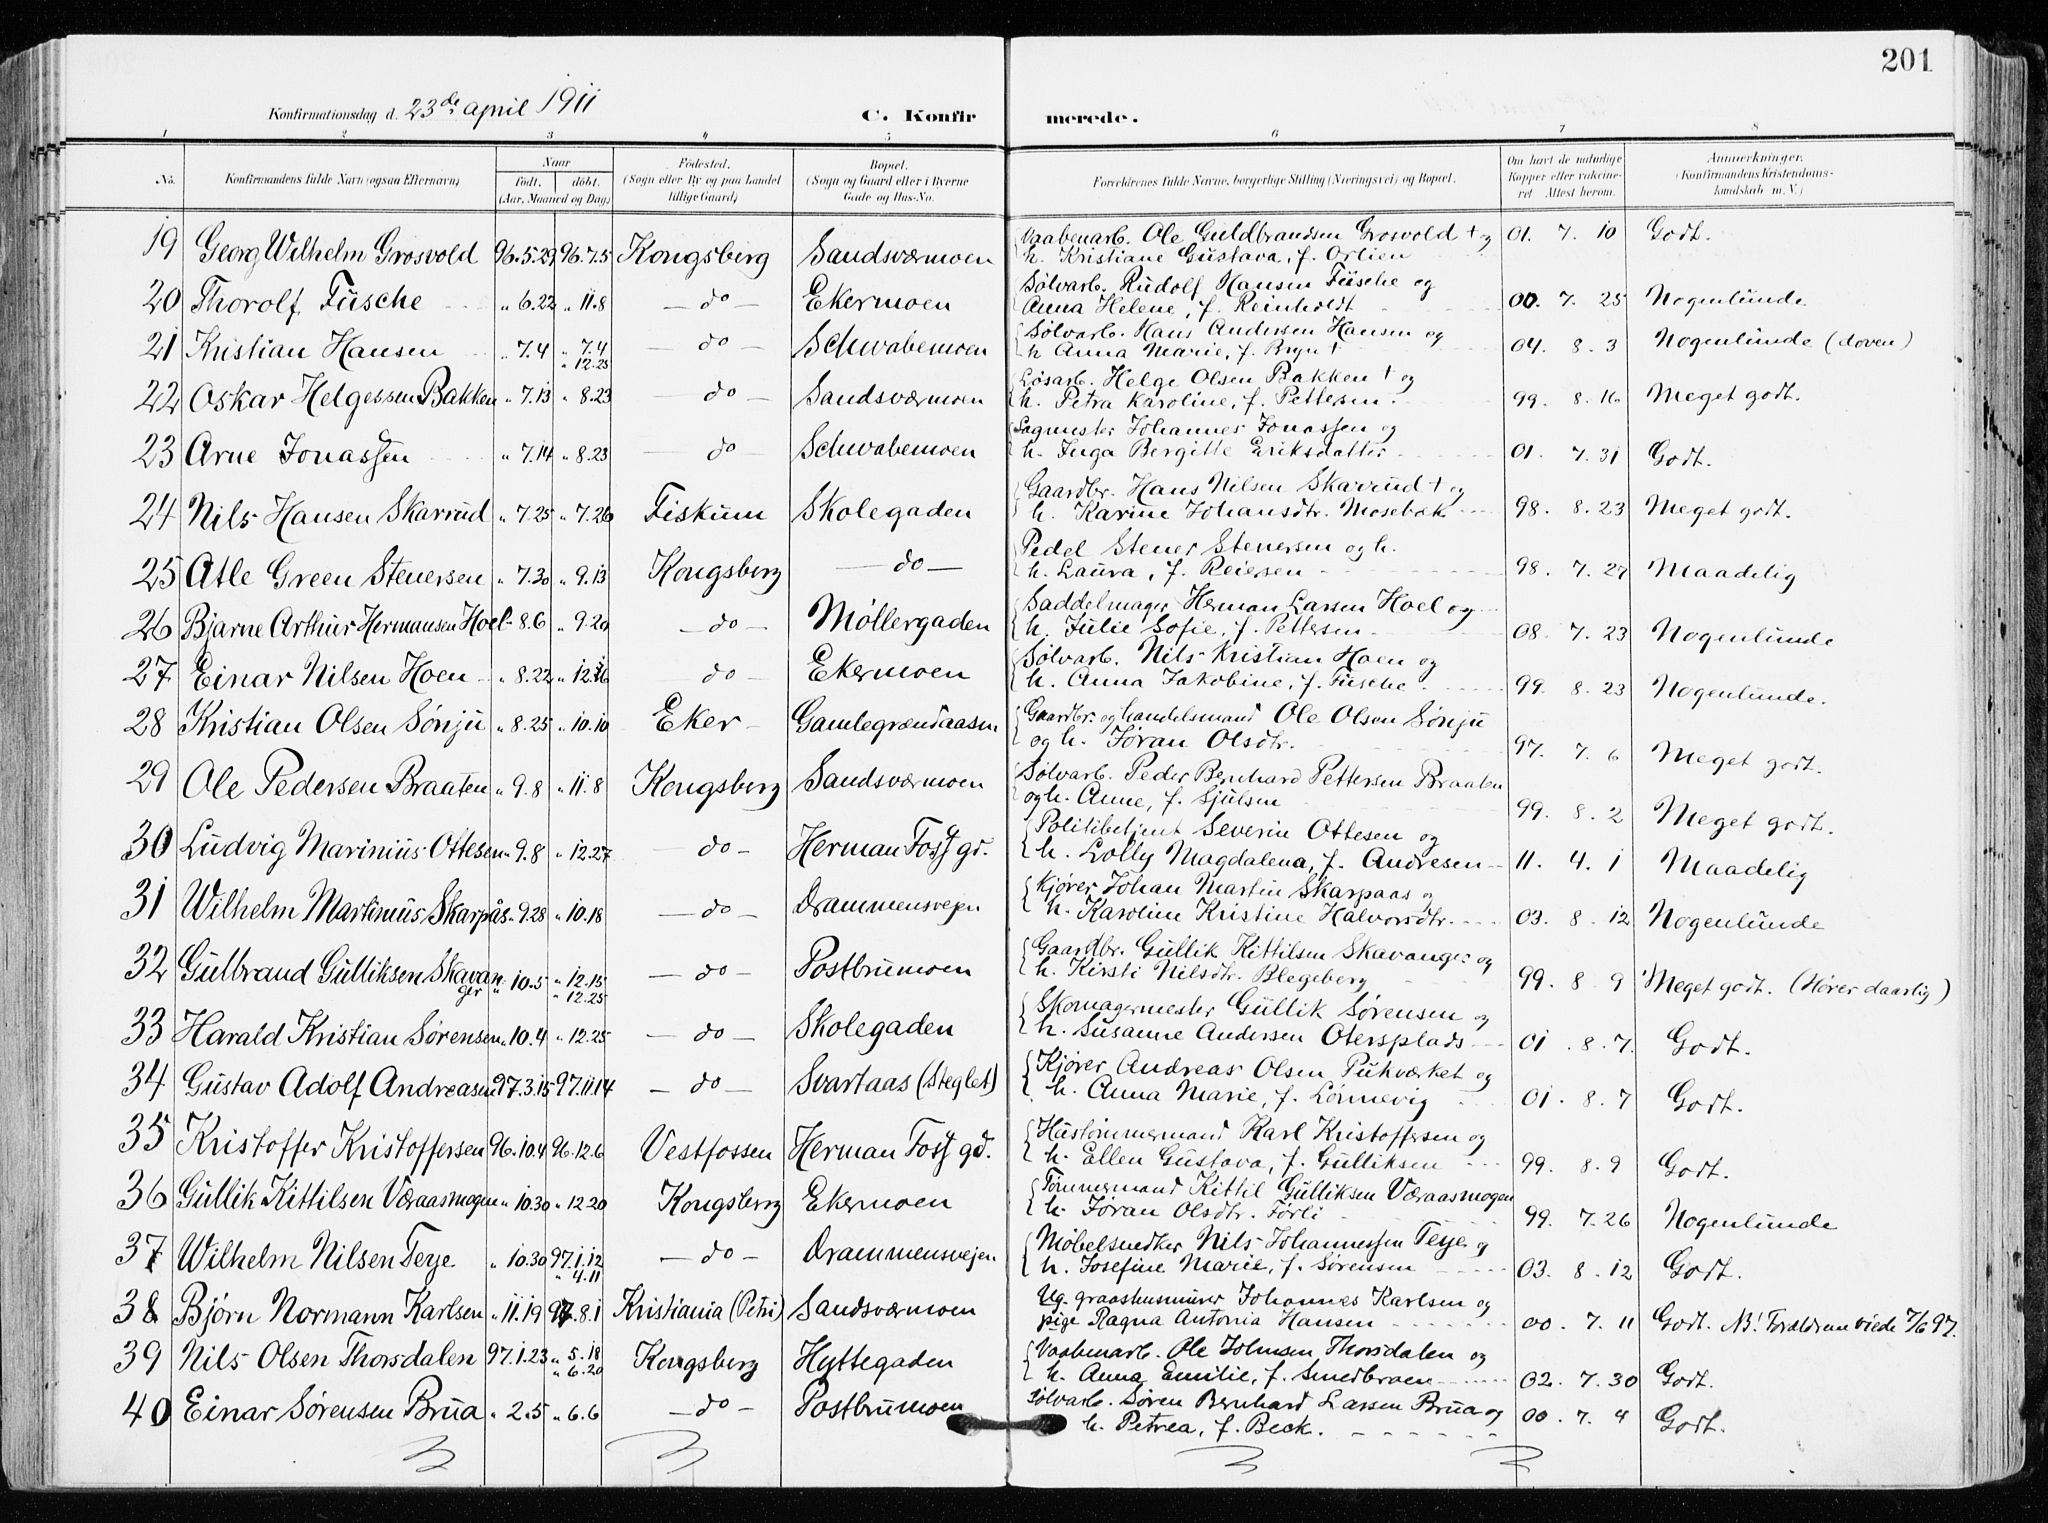 201
Konfirmationsdag d. 23de april 1911
C. Konfirmerede.
1 2 3 4 5 6 7 8
No. Konfirmandens fulde Navn (ogsaa Efternavn) Naar født. døbt. (Aar, Maaned og Dag) Fødested. (Sogn eller By og paa Landet tillige Gaard) Bopæl. (Sogn og Gaard eller i Byerne Gade og Hus-No. Forældrenes fulde Navne, borgerlige Stilling (Næringsvei) og Bopæl. Om havt de naturlige Kopper eller vaccineret Attest herom. Anmerkninger. (Konfirmandens Kristendomskundskab m. V.)
19 Georg Wilhelm Grosvold 96.5.29 96.7.5 Kongsberg Sandsværmoen Vaabenarb. Ole Guldbrandsen Grosvold † og 01. 7. 10 Godt.
h. Kristiane Gustava, f. Orlien
20 Thorolf Füsche " 6.22 " 11.8 — do — Ekermoen Sølvarb. Rudolf Hansen Füsche og
Anna Helene, f. Reinholdt 00. 7. 25 Nogenlunde
21 Kristian Hansen " 7.4 " 7.4 " 12.25 — do — Schwabemoen Sølvarb. Hans Andersen Hansen og
h Anna Marie, f. Bryn † 04. 8. 3 Nogenlunde (doven)
22 Oskar Helgessen Bakken " 7.13 " 8.23 — do — Sandsværmoen Løsarb. Helge Olsen Bakken † og
h. Petra Karoline, f. Pettersen. 99. 8. 16 Meget godt.
23 Arne Jonassen " 7.14 " 8.23 — do — Schwabemoen Sagmester Johannes Jonassen og
h. Inga Bergitte Eriksdatter 01. 7. 31 Godt.
24 Nils Hansen Skarrud " 7.25 " 7.26 Fiskum Skolegaden Gaardbr. Hans Nilsen Skarrud † og
h. Karine Johansdtr. Mosebæk 98. 8. 23 Meget godt.
25 Atle Green Stenersen " 7.30 " 9.13 Kongsberg — do — Pedel Stener Stenersen og h.
h. Laura, f. Reiersen 98. 7. 27 Maadelig
26 Bjarne Arthur Hermansen Hoel " 8.6 " 9.20 — do — Møllergaden Saddelmager Herman Larsen Hoel og
h. Julie Sofie, f. Pettersen 08. 7. 23 Nogenlunde
27 Einar Nilsen Hoen " 8.22 " 12.26 — do — Ekermoen Sølvarb. Nils Kristian Hoen og
h. Anna Jakobine, f. Füsche. 99. 8. 23 Nogenlunde.
28 Kristian Olsen Sønju " 8.25 " 10.10 Eker Gamlegrændaasen Gaardbr. og handelsmand Ole Olsen Sønju
og h. Jøran Olsdtr. 97. 7. 6 Meget godt.
29 Ole Pedersen Braaten " 9.8 " 11.8 Kongsberg Sandsværmoen Sølvarb. Peder Bernhard Pettersen Braaten
og h. Anne, f. Sjulsen 99. 8. 2 Meget godt.
30 Ludvig Marinius Ottesen " 9.8 " 12.27 — do — Herman Foss gd. Politibetjent Severin Ottesen og
h. Lolly Magdalena, f. Andresen 11. 4. 1 Maadelig
31 Wilhelm Martinius Skarpås " 9.28 " 10.18 — do — Drammensvejen Kjører Johan Martin Skarpaas og
h. Karoline Kristine Halvorsdtr. 03. 8. 12 Nogenlunde
32 Gulbrand Gulliksen Skavanger " 10.5 " 12.15 " 12.25 — do — Postbrumoen Gaardbr. Gullik Kittilsen Skavanger og
h. Kirsti Nilsdtr. Blegeberg 99. 8. 9 Meget godt. (Hører daarlig)
33 Harald Kristian Sørensen " 10.4 " 12.25 — do — Skolegaden Skomagermester Gullik Sørensen og
h. Susanne Andersen Otersplads 01. 8. 7. Godt.
34 Gustav Adolf Andreasen 97.3.15 97.11.14 — do — Svartaas (Steglet) Kjører Andreas Olsen Pukværket og
h. Anna Marie, f. Lønnevig 01. 8. 7 Godt.
35 Kristoffer Kristoffersen 96.10.4 96.12.6 Vestfossen Herman Foss gd. Hustømmermand Karl Kristoffersen og
h. Ellen Gustava, f. Gulliksen 99. 8. 9 Godt.
36 Gullik Kittilsen Væraasmogen " 10.30 " 12.20 Kongsberg Ekermoen Tømmermand Kittil Gulliksen Væraasmogen
h. Jøran Olsdtr. Førli 99. 7. 26 Nogenlunde
37 Wilhelm Nilsen Terje " 10.30 97.1.12 " 4.11 — do — Drammensvejen Møbelsnedker Nils Johannessen Terje og
h. Josefine Marie, f. Sørensen 03. 8. 12 Godt.
38 Bjørn Normann Karlsen " 11.19 97.8.1 Kristiania (Petri) Sandsværmoen Ug. graashusmurer Johannes Karlsen og
pige Ragna Antonia Hansen 00. 7. 11 Godt. NB! Forældrene viede 7/6 97.
39 Nils Olsen Thorsdalen 97.1.23 " 5.18 " 6.20 Kongsberg Hyttegaden Vaabenarb. Ole Johnsen Thorsdalen og
h. Anna Emilie, f. Smedbraen 02. 7. 30 Godt.
40 Einar Sørensen Brua " 2.5 " 6.6 — do — Postbrumoen Sølvarb. Søren Bernhard Larsen Brua og
h. Petrea, f. Beck. 00. 7. 4 Godt.